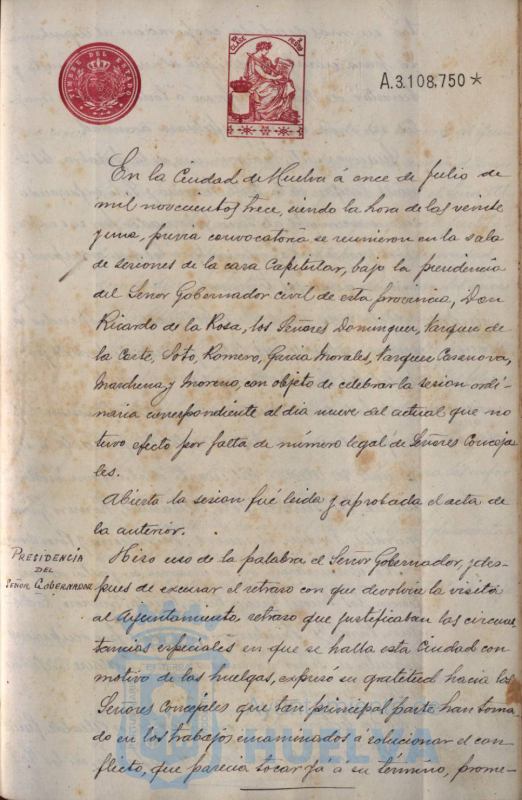 TIMBRE DEL ESTADO
A.3.108,750*
En la Ciudad de Huelva á once de Julio de
mil novecientos trece, siendo la hora de las veinte
y una, previa convocatoria se reunieron en la sala
de sesiones de la casa Capitular, bajo la presidencia
del Señor Gobernador civil de esta provincia, Don
Ricardo de la Rosa, los Señores Dominguez, Vazquez de
la Corte, Soto, Romero, Garcia Morales, Vazquez Casanova,
Marchena, y Moreno, con objeto de celebrar la sesion ordi-
naria correspondiente al dia nueve del actual que no
tuvo efecto por falta de número legal de Señores Conceja
les.
Abierta la sesion fué leida y aprobada el acta de
la anterior.
PRESIDENCIA
DEL
SEÑOR GOBERNADOR
Hizo uso de la palabra el Señor Gobernador, y des-
pues de excusar el retraso con que devolvia la visita
al Ayuntamiento, retraso que justificaban las circuns
tancias especiales en que se halla esta Ciudad con
motivo de las huelgas, expresó su gratitud hacia los
Señores Concejales que tan principal parte han toma
do en los trabajos encaminados á solucionar el con-
flicto, que parecia tocar yá á su término, prome-
HUELVA